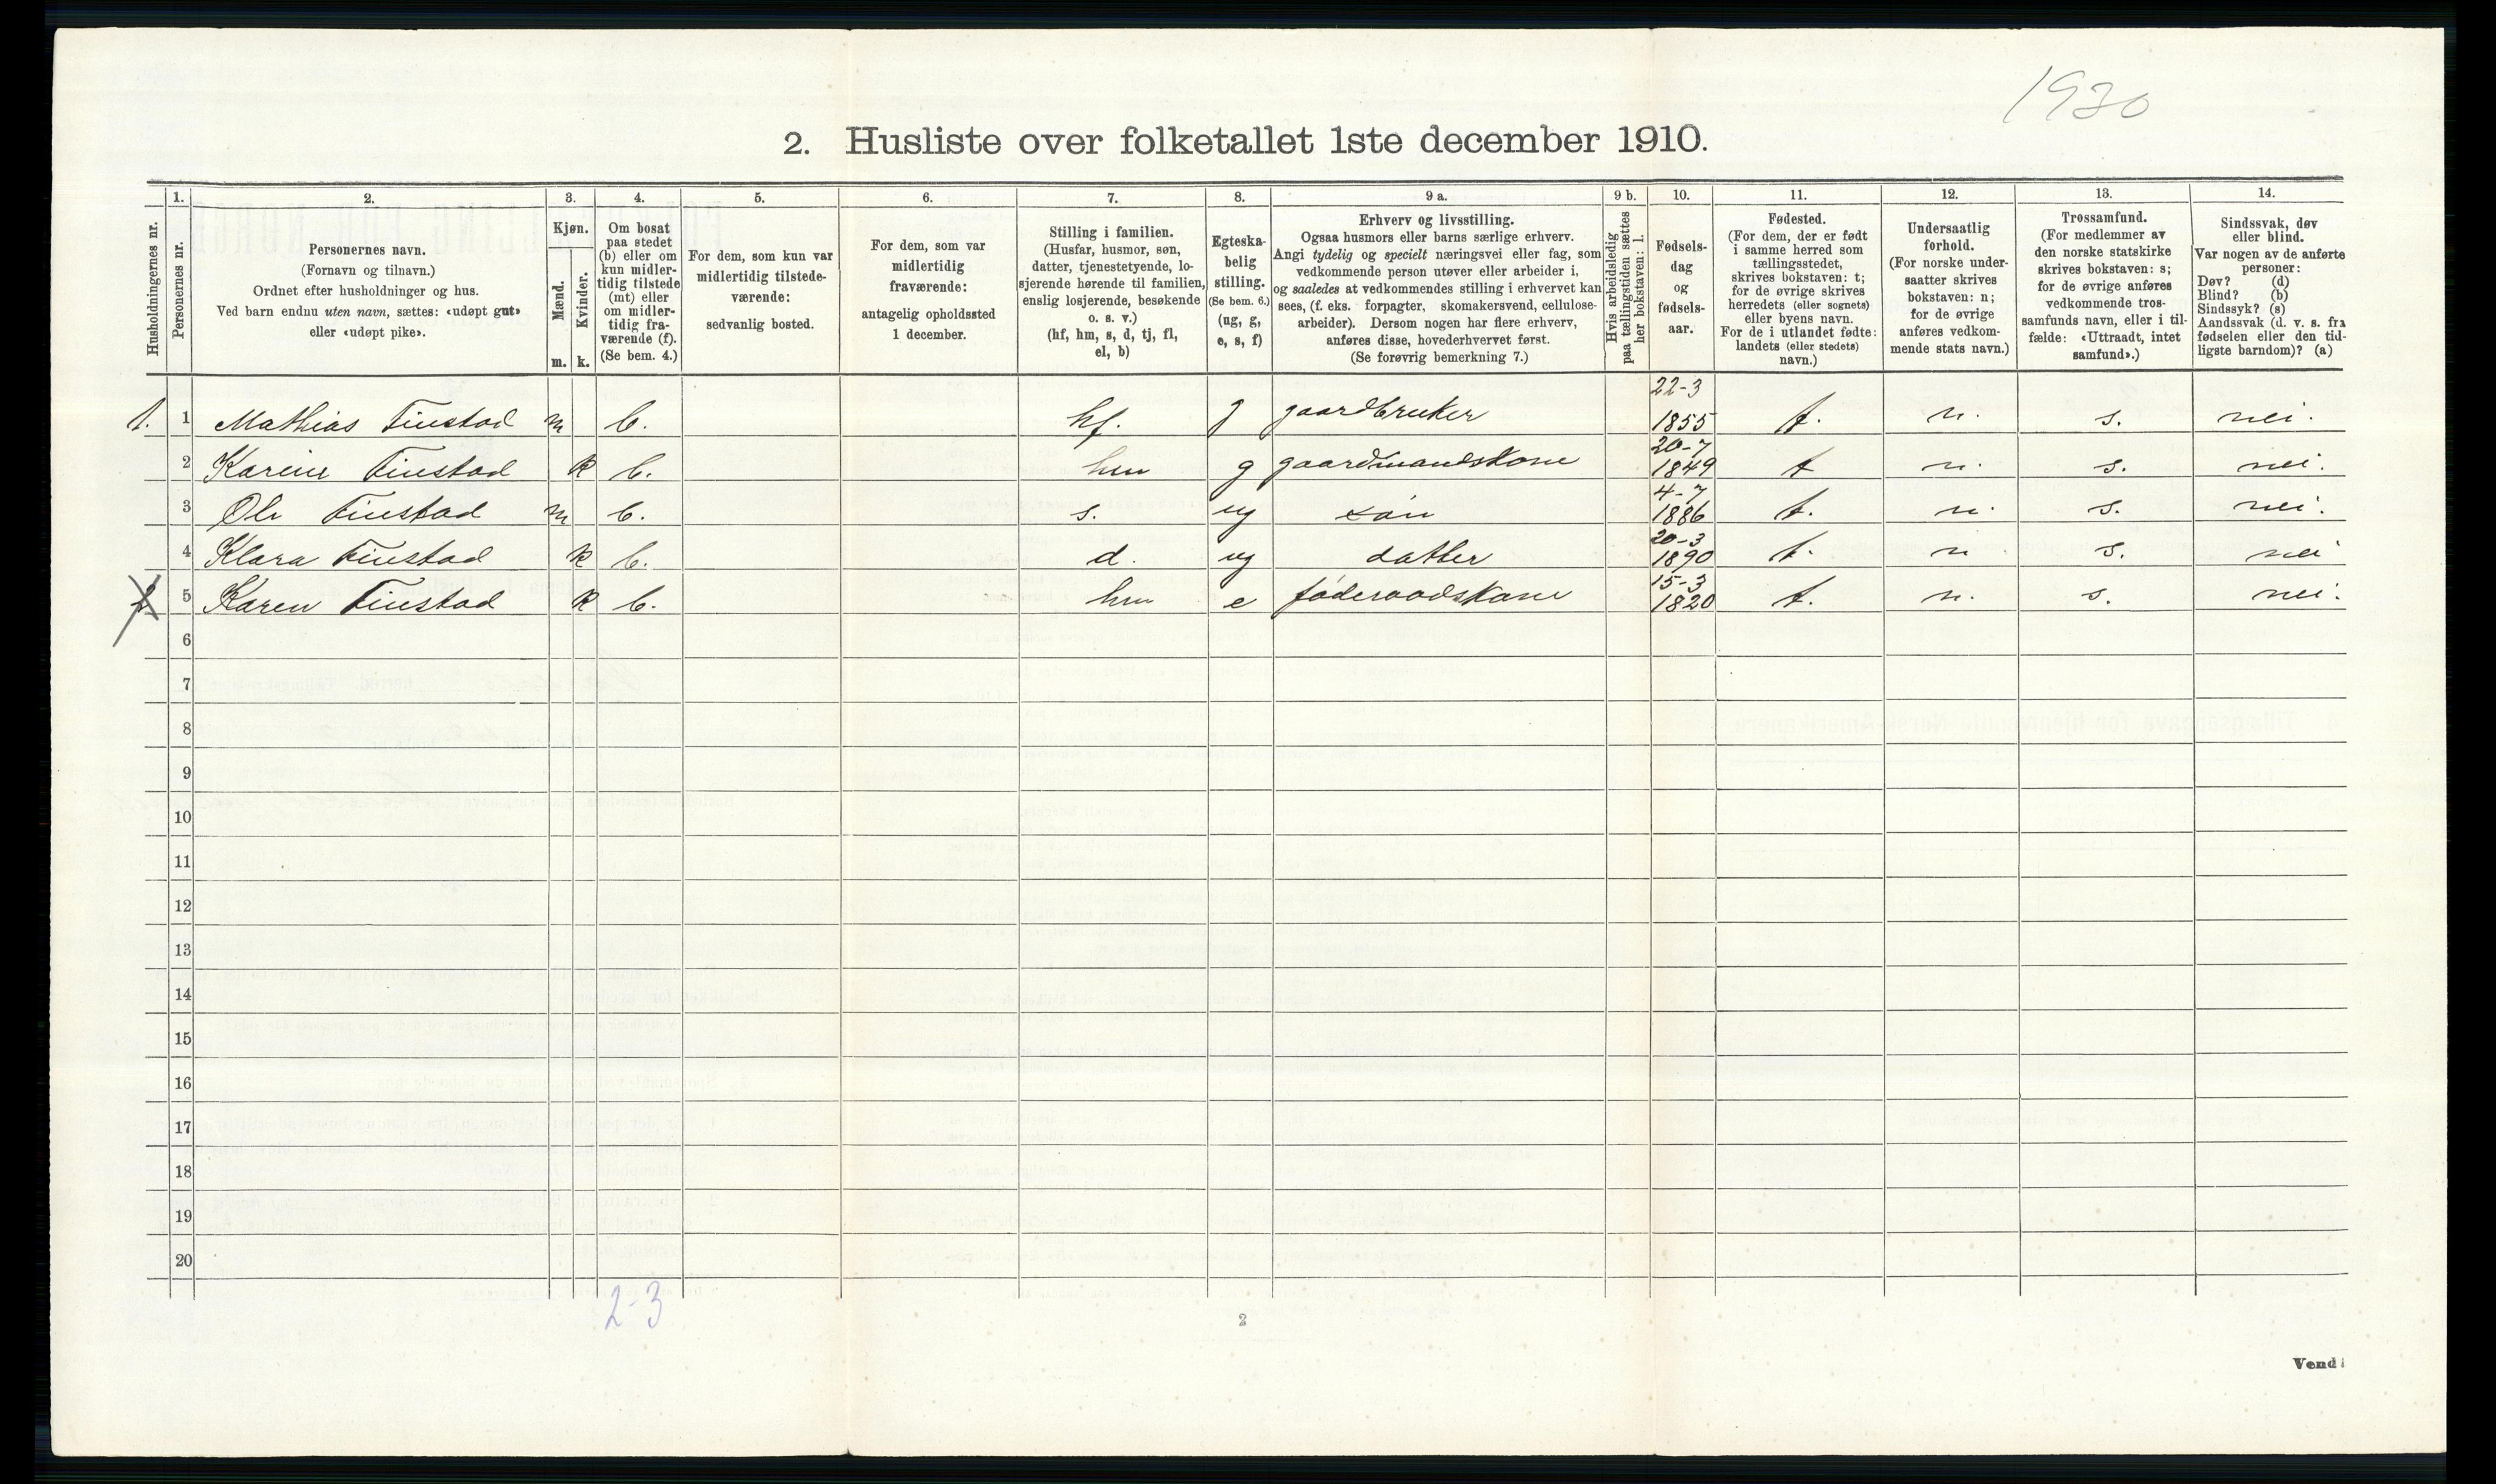 1930
2. Husliste over folketallet 1ste december 1910.
1. 2. 3. 4. 5. 6. 7. 8. 9 a. 9 b. 10. 11. 12. 13. 14.
Husholdningernes nr.
Personernes nr.
Personernes navn.
(Fornavn og tilnavn.)
Ordnet efter husholdninger og hus.
Ved barn endnu uten navn, sættes: «udøpt gut»
eller «udøpt pike».
Kjøn.
Mænd.
Kvinder.
m. k.
Om bosat
paa stedet
(b) eller om
kun midler-
tidig tilstede
(mt) eller
om midler-
tidig fra-
værende (f).
(Se bem. 4.)
For dem, som kun var
midlertidig tilstede-
værende:
sedvanlig bosted.
For dem, som var
midlertidig
fraværende:
antagelig opholdssted
1 december.
Stilling i familien.
(Husfar, husmor, søn,
datter, tjenestetyende, lo-
sjerende hørende til familien,
enslig losjerende, besøkende
o. s. v.)
(hf, hm, s, d, tj, fl,
el, b)
Egteska-
belig
stilling.
(Se bem. 6.)
(ug, g,
e, s, f)
Erhverv og livsstilling.
Ogsaa husmors eller barns særlige erhverv.
Angi tydelig og specielt næringsvei eller fag, som
vedkommende person utøver eller arbeider i,
og saaledes at vedkommendes stilling i erhvervet kan
sees, (f. eks. forpagter, skomakersvend, cellulose-
arbeider). Dersom nogen har flere erhverv,
anføres disse, hovederhvervet først.
(Se forøvrig bemerkning 7.)
Hvis arbeidsledig
paa tællingstiden sættes
her bokstaven: l.
Fødsels-
dag
og
fødsels-
aar.
Fødested.
(For dem, der er født
i samme herred som
tællingsstedet,
skrives bokstaven: t;
for de øvrige skrives
herredets (eller sognets)
eller byens navn.
For de i utlandet fødte:
landets (eller stedets)
navn.)
Undersaatlig
forhold.
(For norske under-
saatter skrives
bokstaven: n;
for de øvrige
anføres vedkom-
mende stats navn.)
Trossamfund.
(For medlemmer av
den norske statskirke
skrives bokstaven: s;
for de øvrige anføres
vedkommende tros-
samfunds navn, eller i til-
fælde: «Uttraadt, intet
samfund».)
Sindssvak, døv
eller blind.
Var nogen av de anførte
personer:
Døv? (d)
Blind? (b)
Sindssyk? (s)
Aandssvak (d. v. s. fra
fødselen eller den tid-
ligste barndom)? (a)
1. 1 Mathias Finstad m b. hf. g gaardbruker 22-3 1855 t. n. s. nei.
2 Karine Finstad k b. hm g gaardmandskone 20-7 1849 t n. s. nei.
3 Ole Finstad m b. s. ug søn 4-7 1886 t. n. s. nei.
4 Klara Finstad k b. d. ug datter 20-3 1890 t. n s. nei
2 5 Karen Finstad k b. hm e føderaadskone 15-3 1820 t. n. s. nei.
6
7
8
9
10
11
12
13
14
15
16
17
18
19
20
2-3
2
Vend!